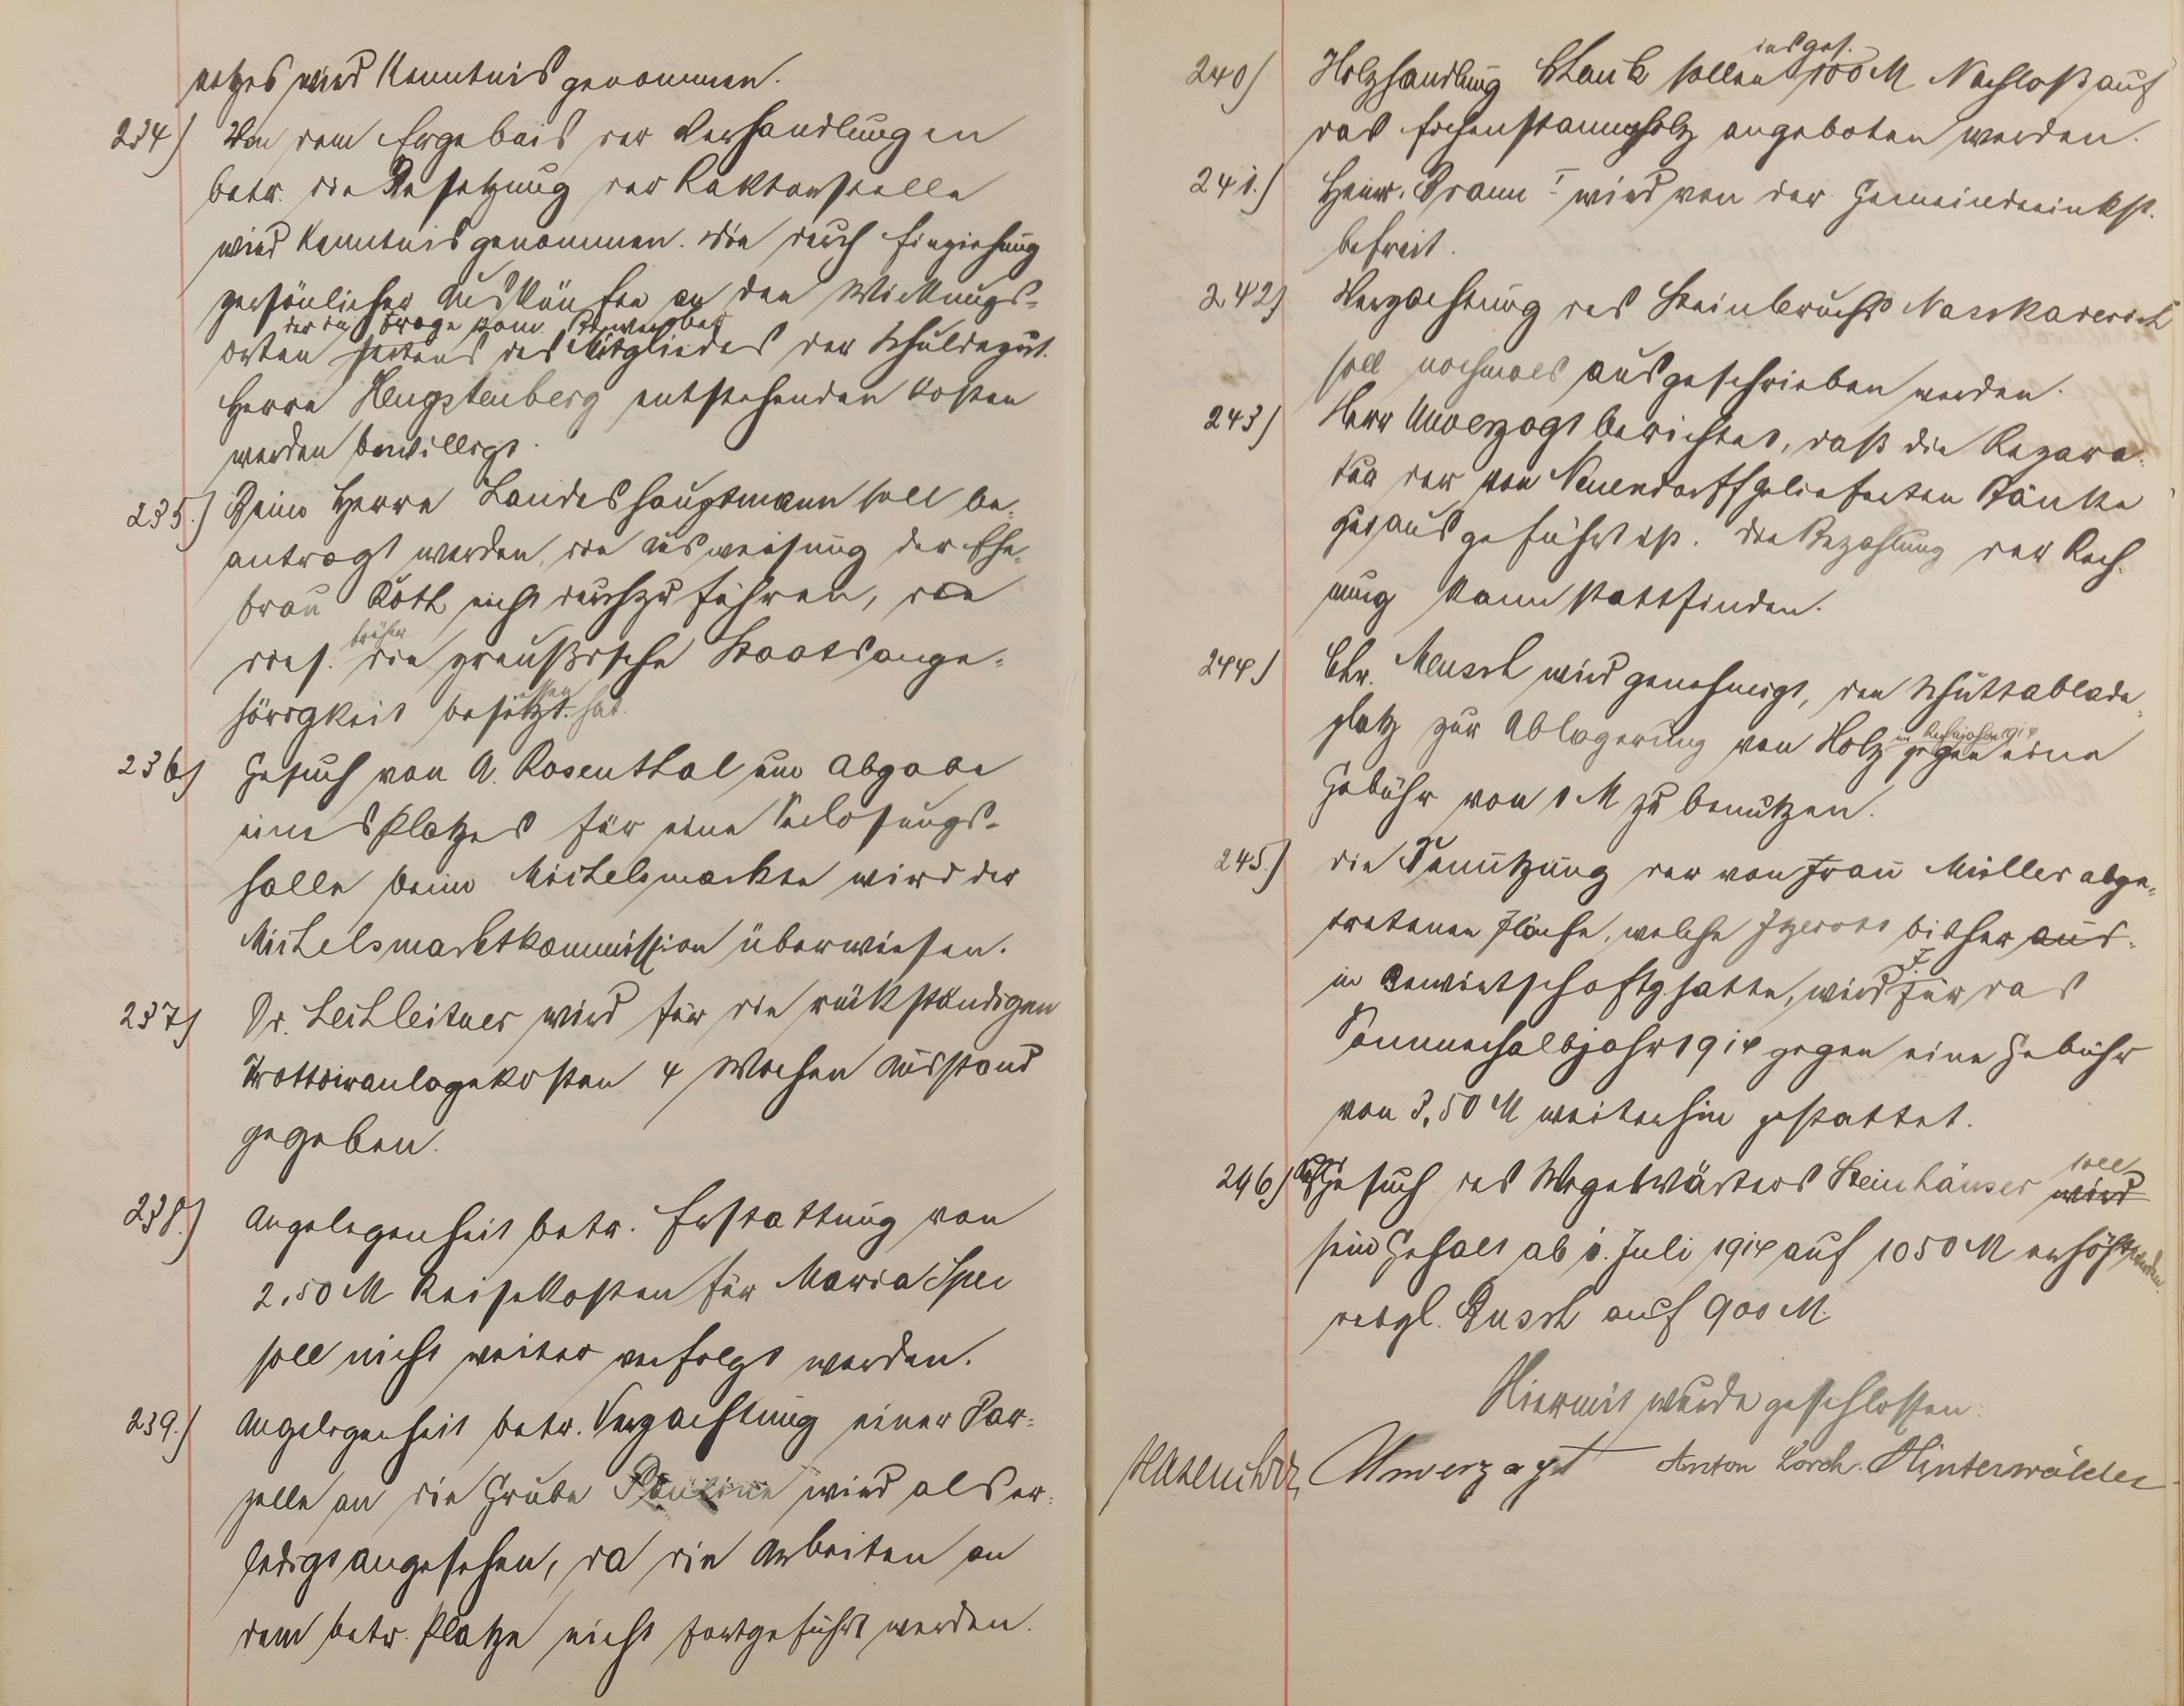 netzes wird Kenntnis genommen.
234) Von dem Ergebnis der Verhandlungen
betr. die Besetzung der Rektorstelle
wird Kenntnis genommen. Die durch Einziehung
persönlicher Auskünfte an den Wirkungs-
orten der in Frage kom. Bewerber
seitens des Mitgliedes der Schuldeput.
Herrn Hengstenberg entstehenden Kosten
werden bewilligt.
235.) Beim Herrn Landeshauptmann soll be-
antragt werden, die Ausweisung der Ehe-
frau Roth nicht durchzuführen, da
dies. früher die preußische Staatsange-
hörigkeit besessen hat.
236) Gesuch von A. Rosenthal um Abgabe
eines Platzes für eine Verlosungs-
halle beim Michelsmarkte wird der
Michelsmarktkommission überwiesen.
237) Dr. Lechleitner wird für die rückständigen
Trottoiranlagekosten 4 Wochen Ausstand
gegeben.
238.) Angelegenheit betr. Erstattung von
2.50 M Reisekosten für Maria
soll nicht weiter verfolgt werden.
239.) Angelegenheit betr. Verpachtung einer Par-
zelle an die Grube Pauline wird als er-
ledigt angesehen, da die Arbeiten an
dem betr. Platze nicht fortgeführt werden.
240) Holzhandlung Stauk sollen insges. 100 M Nachlaß auf
das Eichenstammholz angeboten werden.
241.) Heinr. Braun I wird von der Gemeindeeinkst.
befreit.
242) Verpachtung des Steinbruchs
soll nochmals ausgeschrieben werden.
243) Herr Unverzagt berichtet, daß die Repara-
tur der von Neuendorff gelieferten Bänke
gut ausgeführt ist. Die Bezahlung der Rech-
nung kann stattfinden.
244) Chr. Meusch wird genehmigt, den Schuttablade-
platz zur Ablagerung von Holz im Rechnjahre 1914 gegen eine
Gebühr von 1 M zu benutzen.
245.) Die Benutzung der von Frau Müller abge-
tretenen Fläche, welche bisher aus-
in Bewirtschaftg hatte, wird J. für das
Sommerhalbjahr 1914 gegen eine Gebühr
von 3,50 M weiterhin gestattet.
246) Auf Gesuch des Wegewärters Steinhäuser wird soll
sein Gehalt ab 1. Juli 1914 auf 1050 M erhöht werden.
desgl. Busch auf 900 M.
Hiermit wurde geschlossen.
Unverzagt Anton Lorch. Hinterwälder